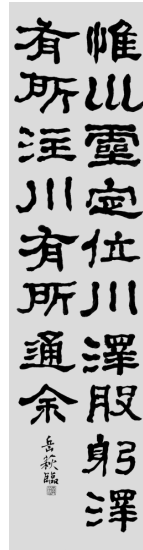 惟巛靈定位川澤股躬澤
有所注川有所通余
岳萩臨